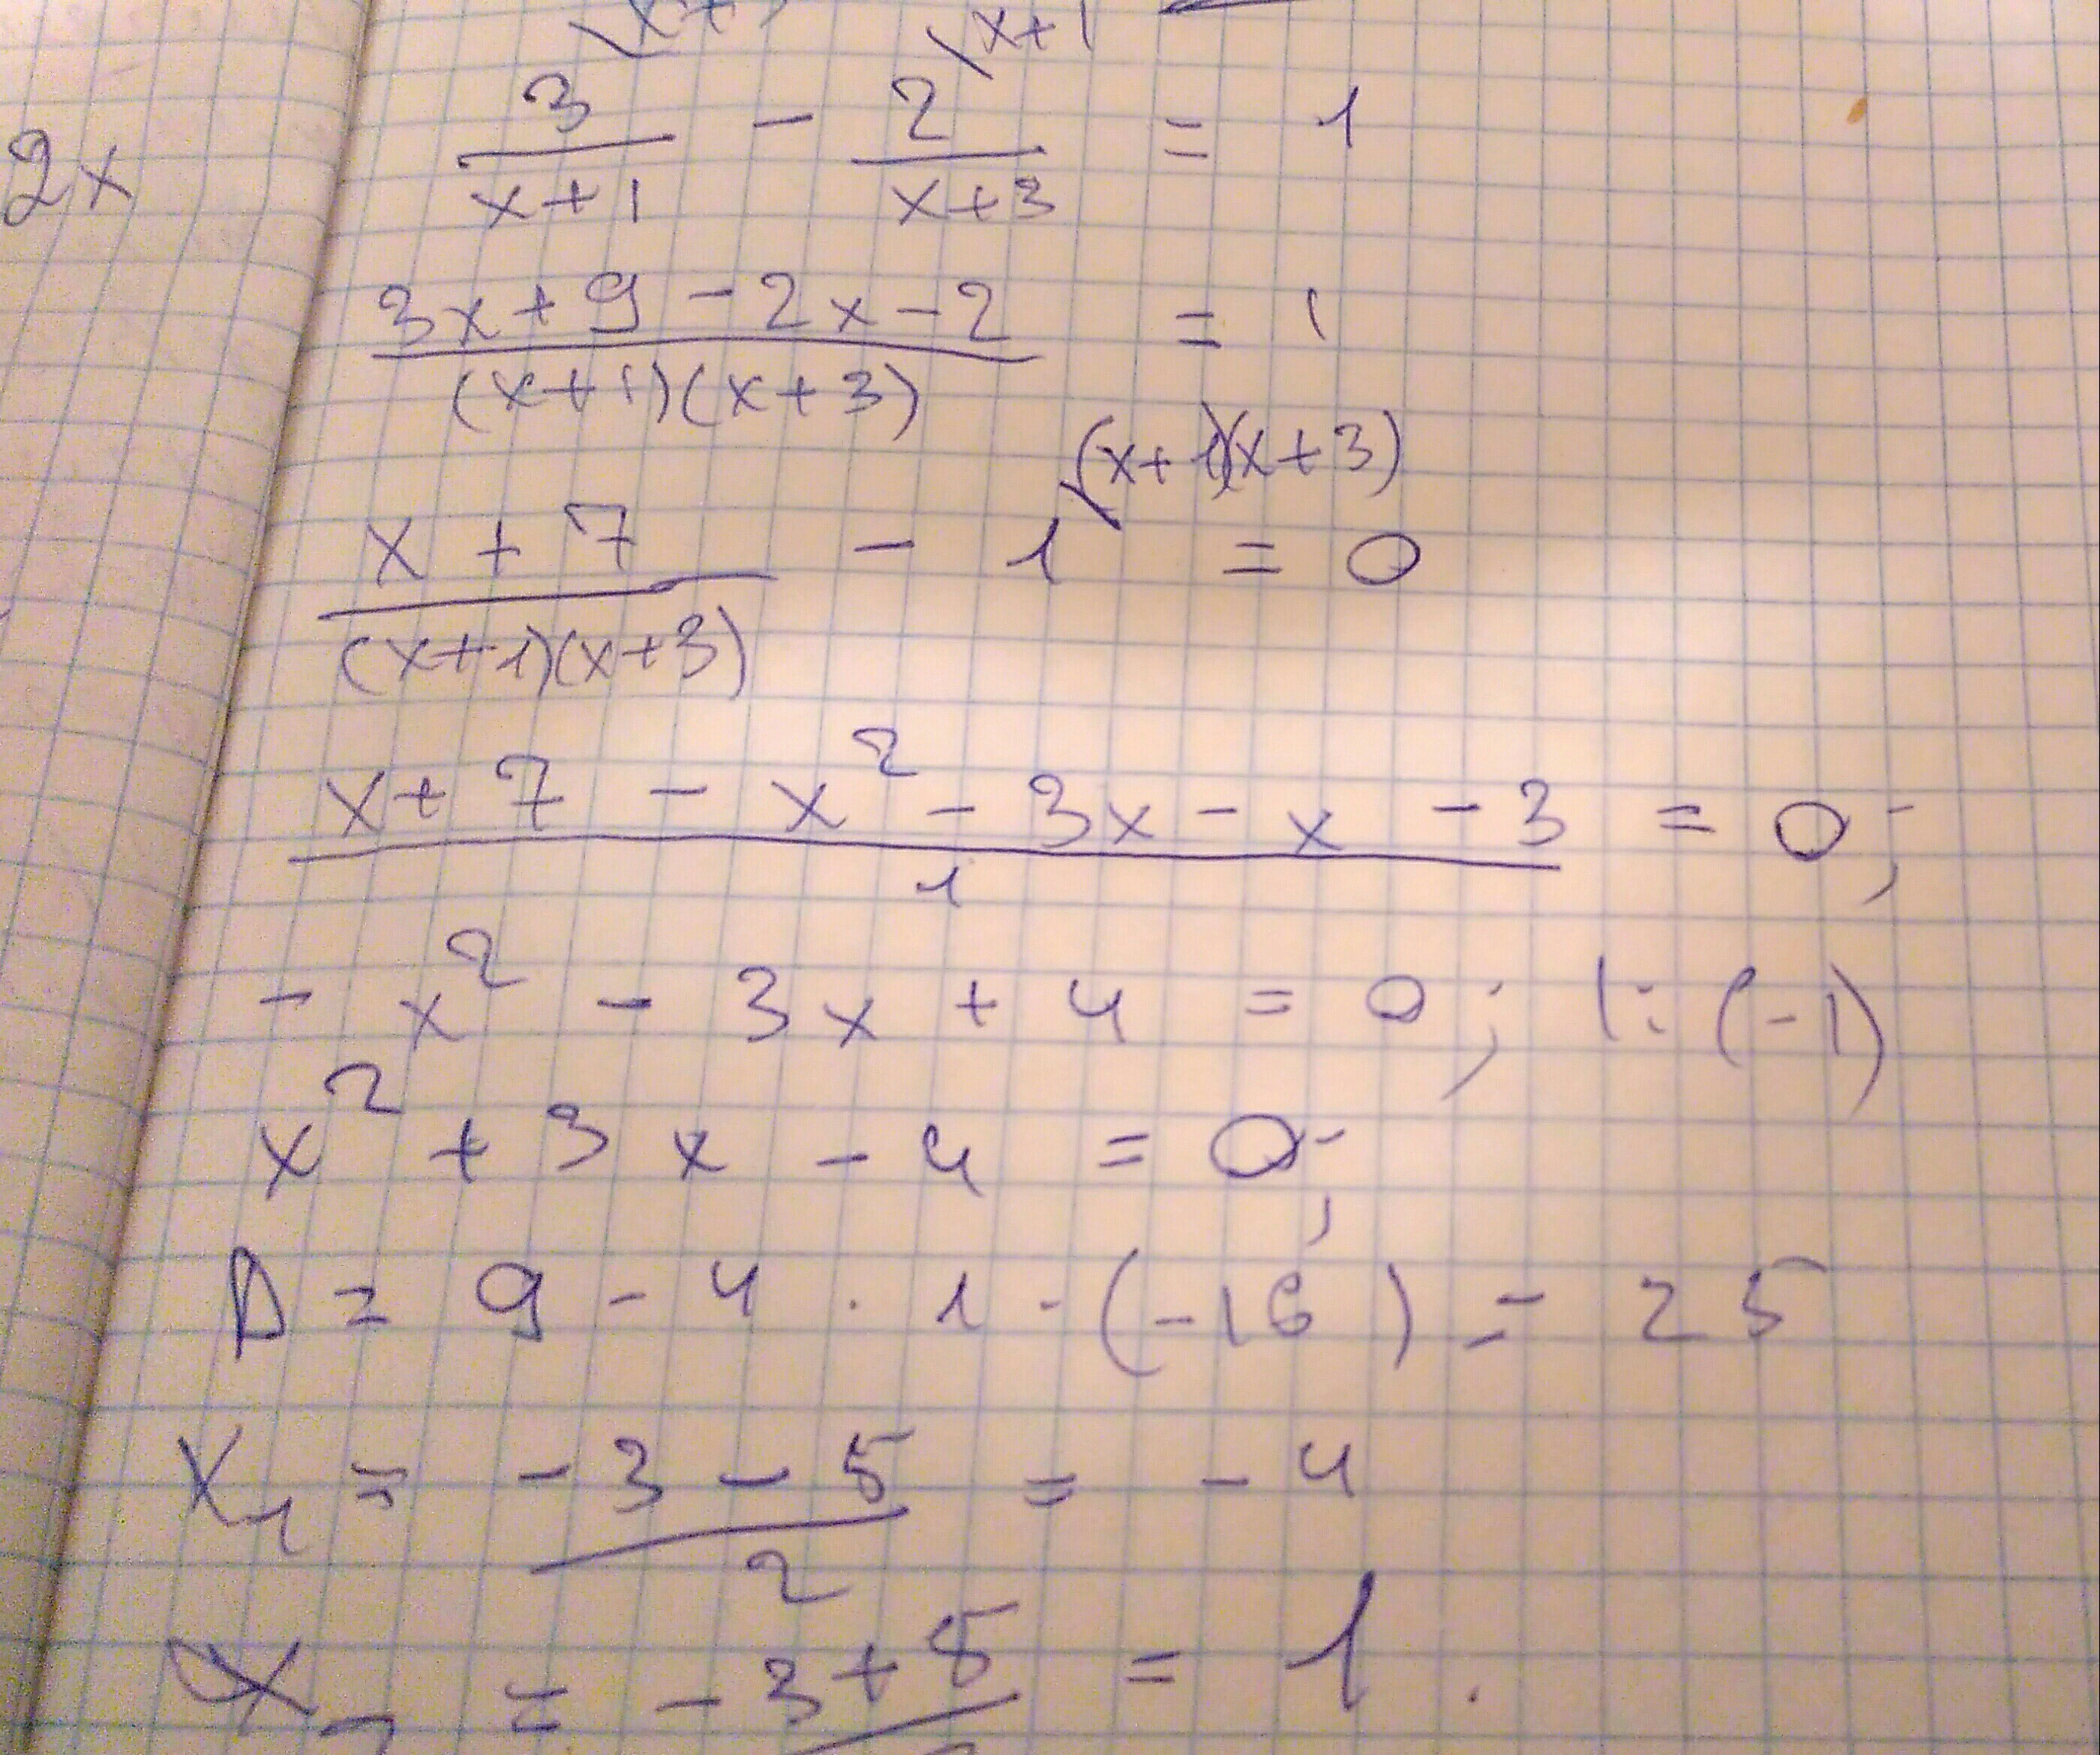 x+1
3/(x+1) - 2/(x+3) = 1
2x
(3x+9-2x-2)/((x+1)(x+3)) = 1
(x+1)(x+3)
(x+7)/((x+1)(x+3)) - 1 = 0
(x+7-x²-3x-x-3)/1 = 0;
-x² - 3x + 4 = 0; |:(-1)
x² + 3x - 4 = 0;
D = 9 - 4 · 1 · (-16) = 25
x₁ = (-3-5)/2 = -4
x₂ = -3+5 = 1.